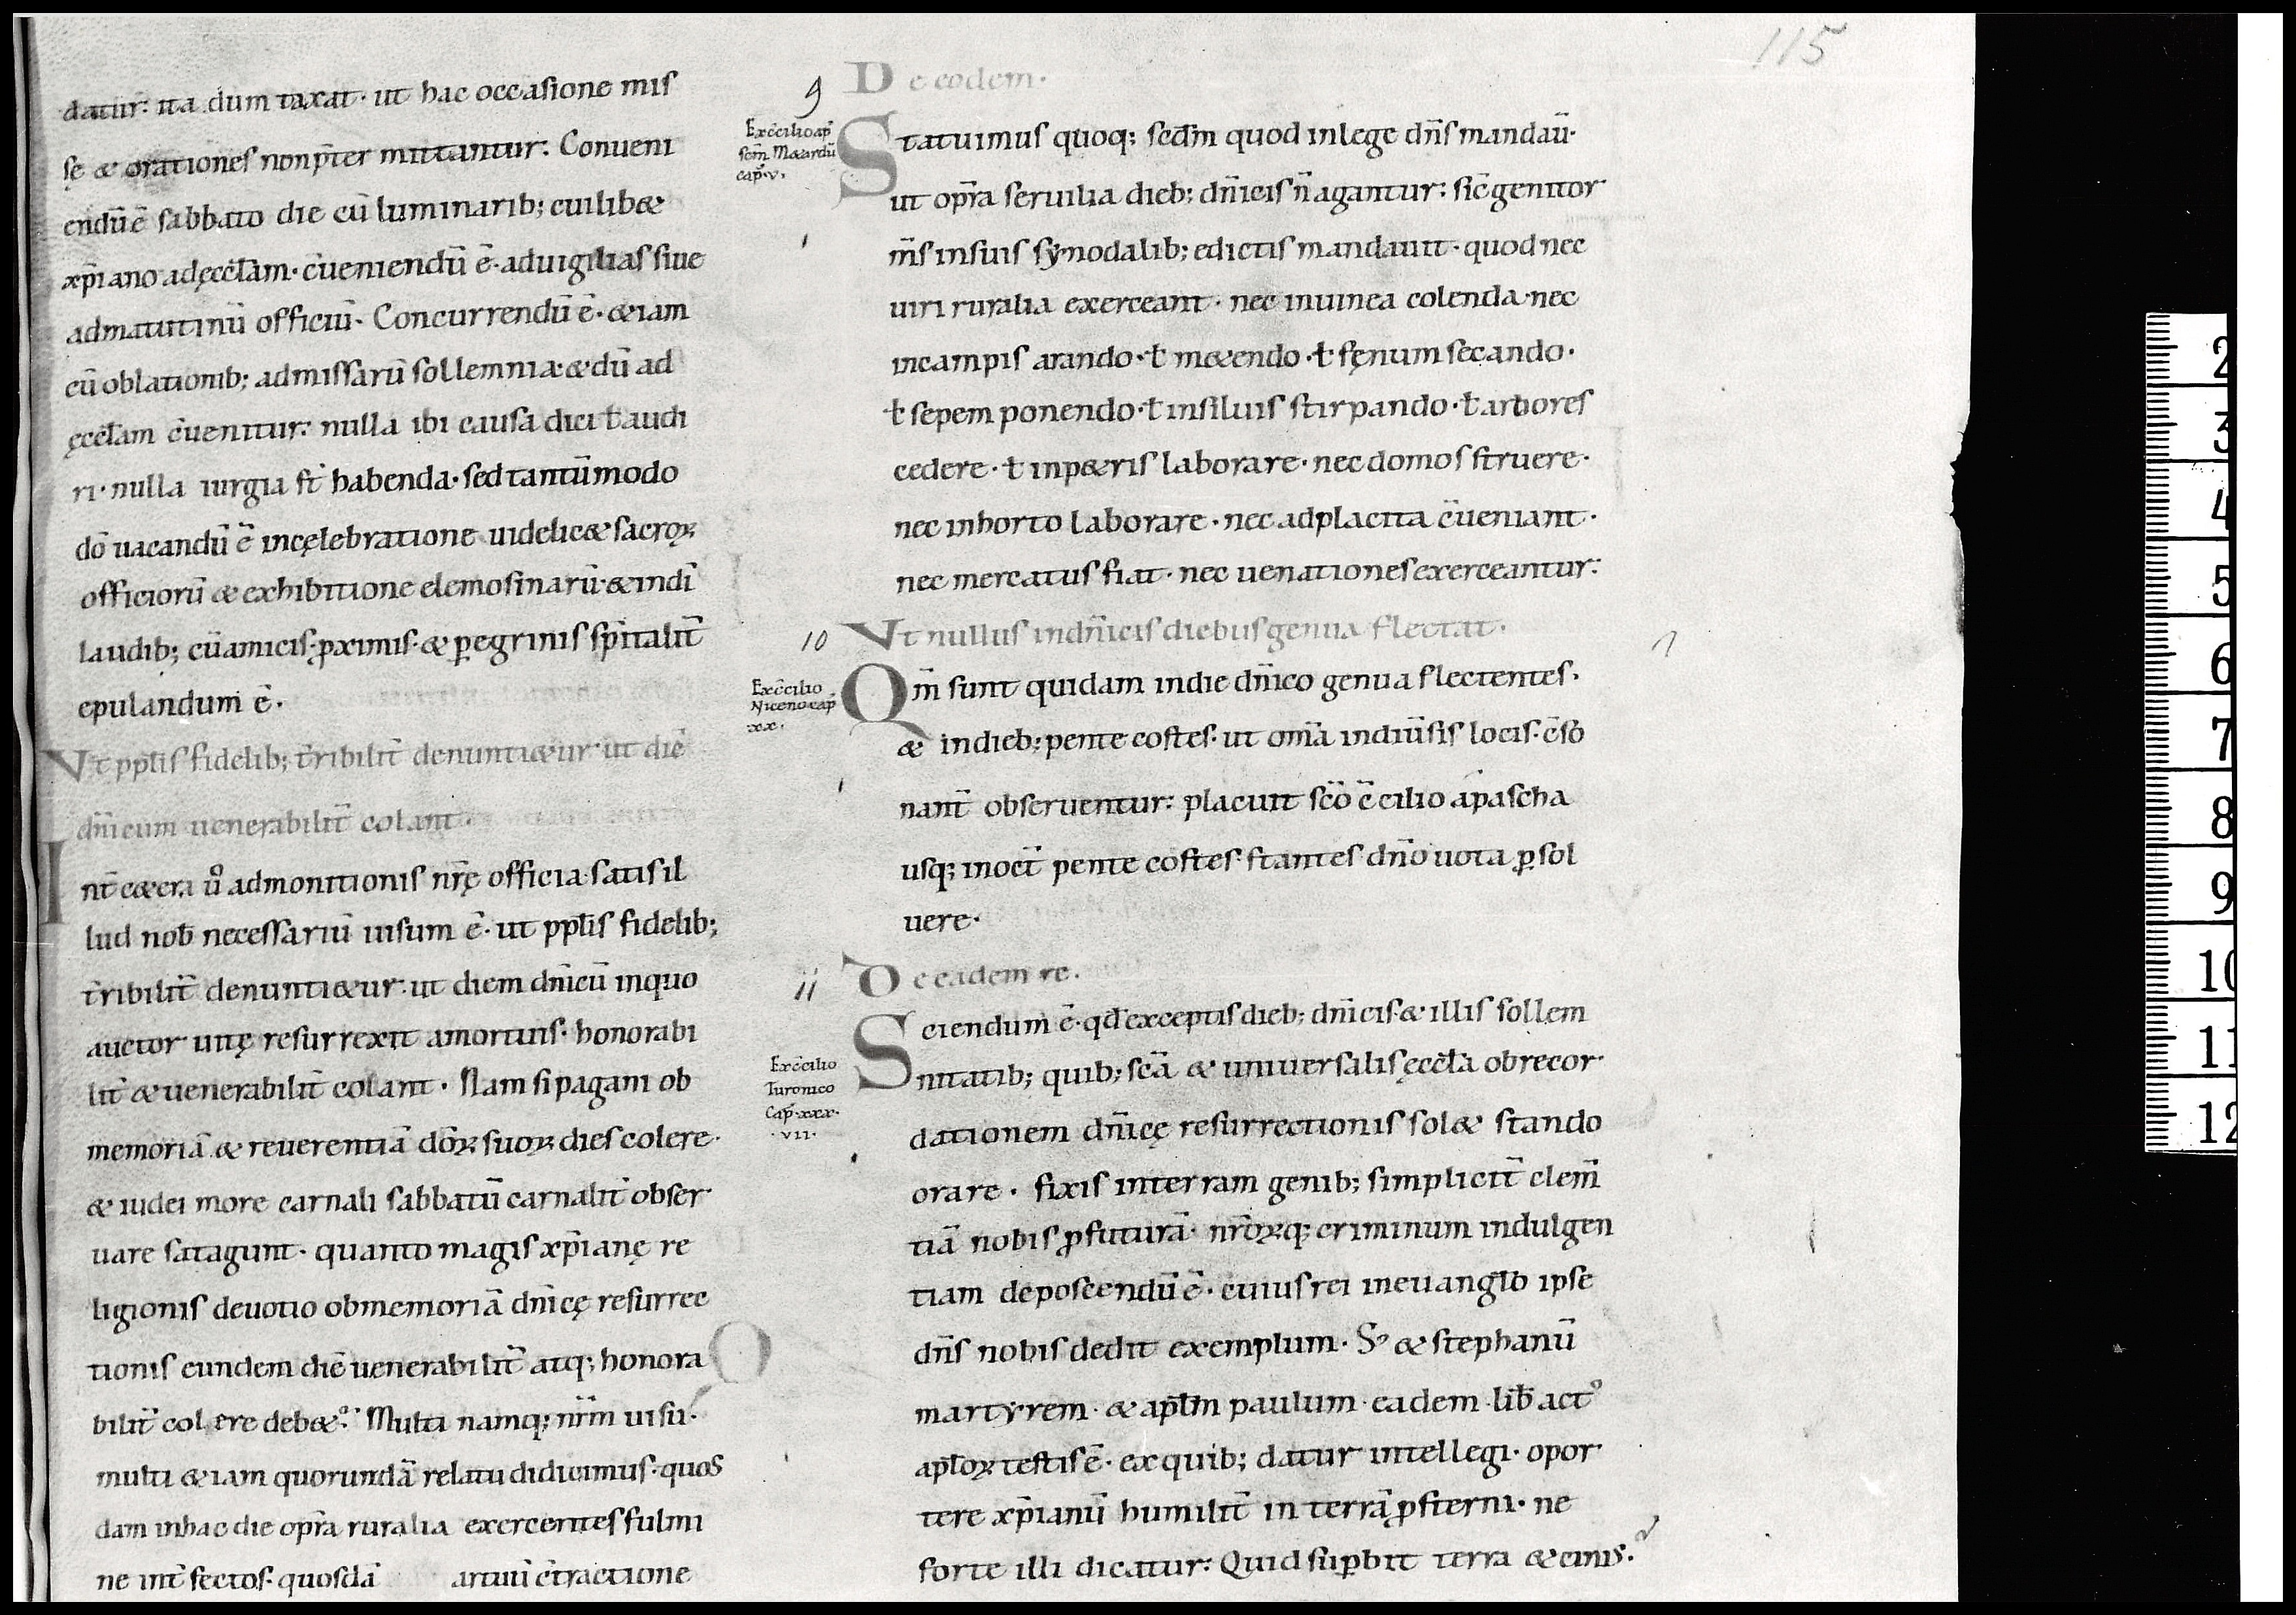 115
datur: ita dum taxat· ut hac occasione mis
sę & orationes non p̄ter mittantur: Conueni
endū ē sabbato die cū luminarib; cuilib&
xp̄iano ad ęccl̄am· c̄ueniendū ē· ad uigilias siue
ad matutinū officiū· Concurrendū ē· & iam
cū oblationib; ad missarū sollemnia· & dū ad
ęccl̄am c̄uenitur: nulla ibi causa dici ł audi
ri· nulla iurgia st̄ habenda· sed tantūmodo
dō uacandū ē in cęlebratione uidelic& sacroꝝ
officiorū & exhibitione elemosinarū· & in dī
laudib; cū amicis· ꝓximis· & ꝑegrinis sp̄italit̄
epulandum ē·
Vt ppl̄is fidelib; t̄ribilit̄ denunti&ur· ut diē
dn̄icum uenerabilit̄ colant·
Int̄ c&era ů admonitionis nr̄ę officia satis il
lud nob̄ necessariū uisum ē· ut ppl̄is fidelib;
t̄ribilit̄ denunti&ur· ut diem dn̄icū in quo
auctor uitę resurrexit a mortuis· honorabi
lit̄ & uenerabilit̄ colant· Nam si pagani ob
memoriā & reuerentiā dōꝝ suoꝝ dies colere·
& iudei more carnali sabbatū carnalit̄ obser
uare satagunt· quanto magis xp̄ianę re
ligionis deuotio ob memoriā dn̄icę resurrec
tionis eundem diē uenerabilit̄ atq; honora
bilit̄ colere deb&: Multi namq; nr̄m uisu·
multi & iam quorundā relatu didicimus· quos
dam in hac die opr̄a ruralia exercentes fulmi
ne int̄fectos· quosdā artuū c̄tractione
9
De eodem·
Ex c̄cilio ap̄
scm̄ Medardū
cap̄·v·
Statuimus quoq; scdm̄ quod in lege dn̄s mandaū·
ut opr̄a seruilia dieb; dn̄icis n̄ agantur: sic̄ genitor
m̄s in suis sẏnodalib; edictis mandauit· quod nec
uiri ruralia exerceant· nec in uinea colenda· nec
in campis arando· ł m&endo· ł fęnum secando·
ł sepem ponendo· ł in siluis stirpando· ł arbores
cedere· ł in p&ris laborare· nec domos struere·
nec in horto laborare· nec ad placita c̄ueniant·
nec mercatus fiat· nec uenationes exerceantur:
10
Vt nullus in dn̄icis diebus genua flectat·
Ex c̄cilio
Niceno cap̄
xx·
Qm̄ sunt quidam in die dn̄ico genua flectentes·
& in dieb; pente costes· ut om̄a in diūsis locis· c̄so
nant̄ obseruentur: placuit scō c̄cilio a pascha
usq; in oct̄ pente costes· stantes dn̄o uota ꝑsol
uere·
11
De eadem re·
Ex c̄cilio
Turonico
Cap̄·xxx·
·vii·
Sciendum ē· qd̄ exceptis dieb; dn̄icis· & illis sollem
nitatib; quib; scā & uniuersalis ęccl̄a ob recor
dationem dn̄icę resurrectionis sol& stando
orare· fixis in terram genib; simplicit̄ clem̄
tiā nobis ꝓfuturā· nr̄oꝝq; criminum indulgen
tiam deposcendū ē· cuius rei in euangl̄o ipse
dn̄s nobis dedit exemplum· S; & stephanū
martẏrem· & apl̄m paulum· eadem lib̄ act᾿
apl̄oꝝ testis ē· ex quib; datur intellegi· opor
tere xp̄ianū humilit̄ in terrā ꝓsterni· ne
forte illi dicatur: Quid suꝑbit terra & cinis·
2
3
4
5
6
7
8
9
10
11
12